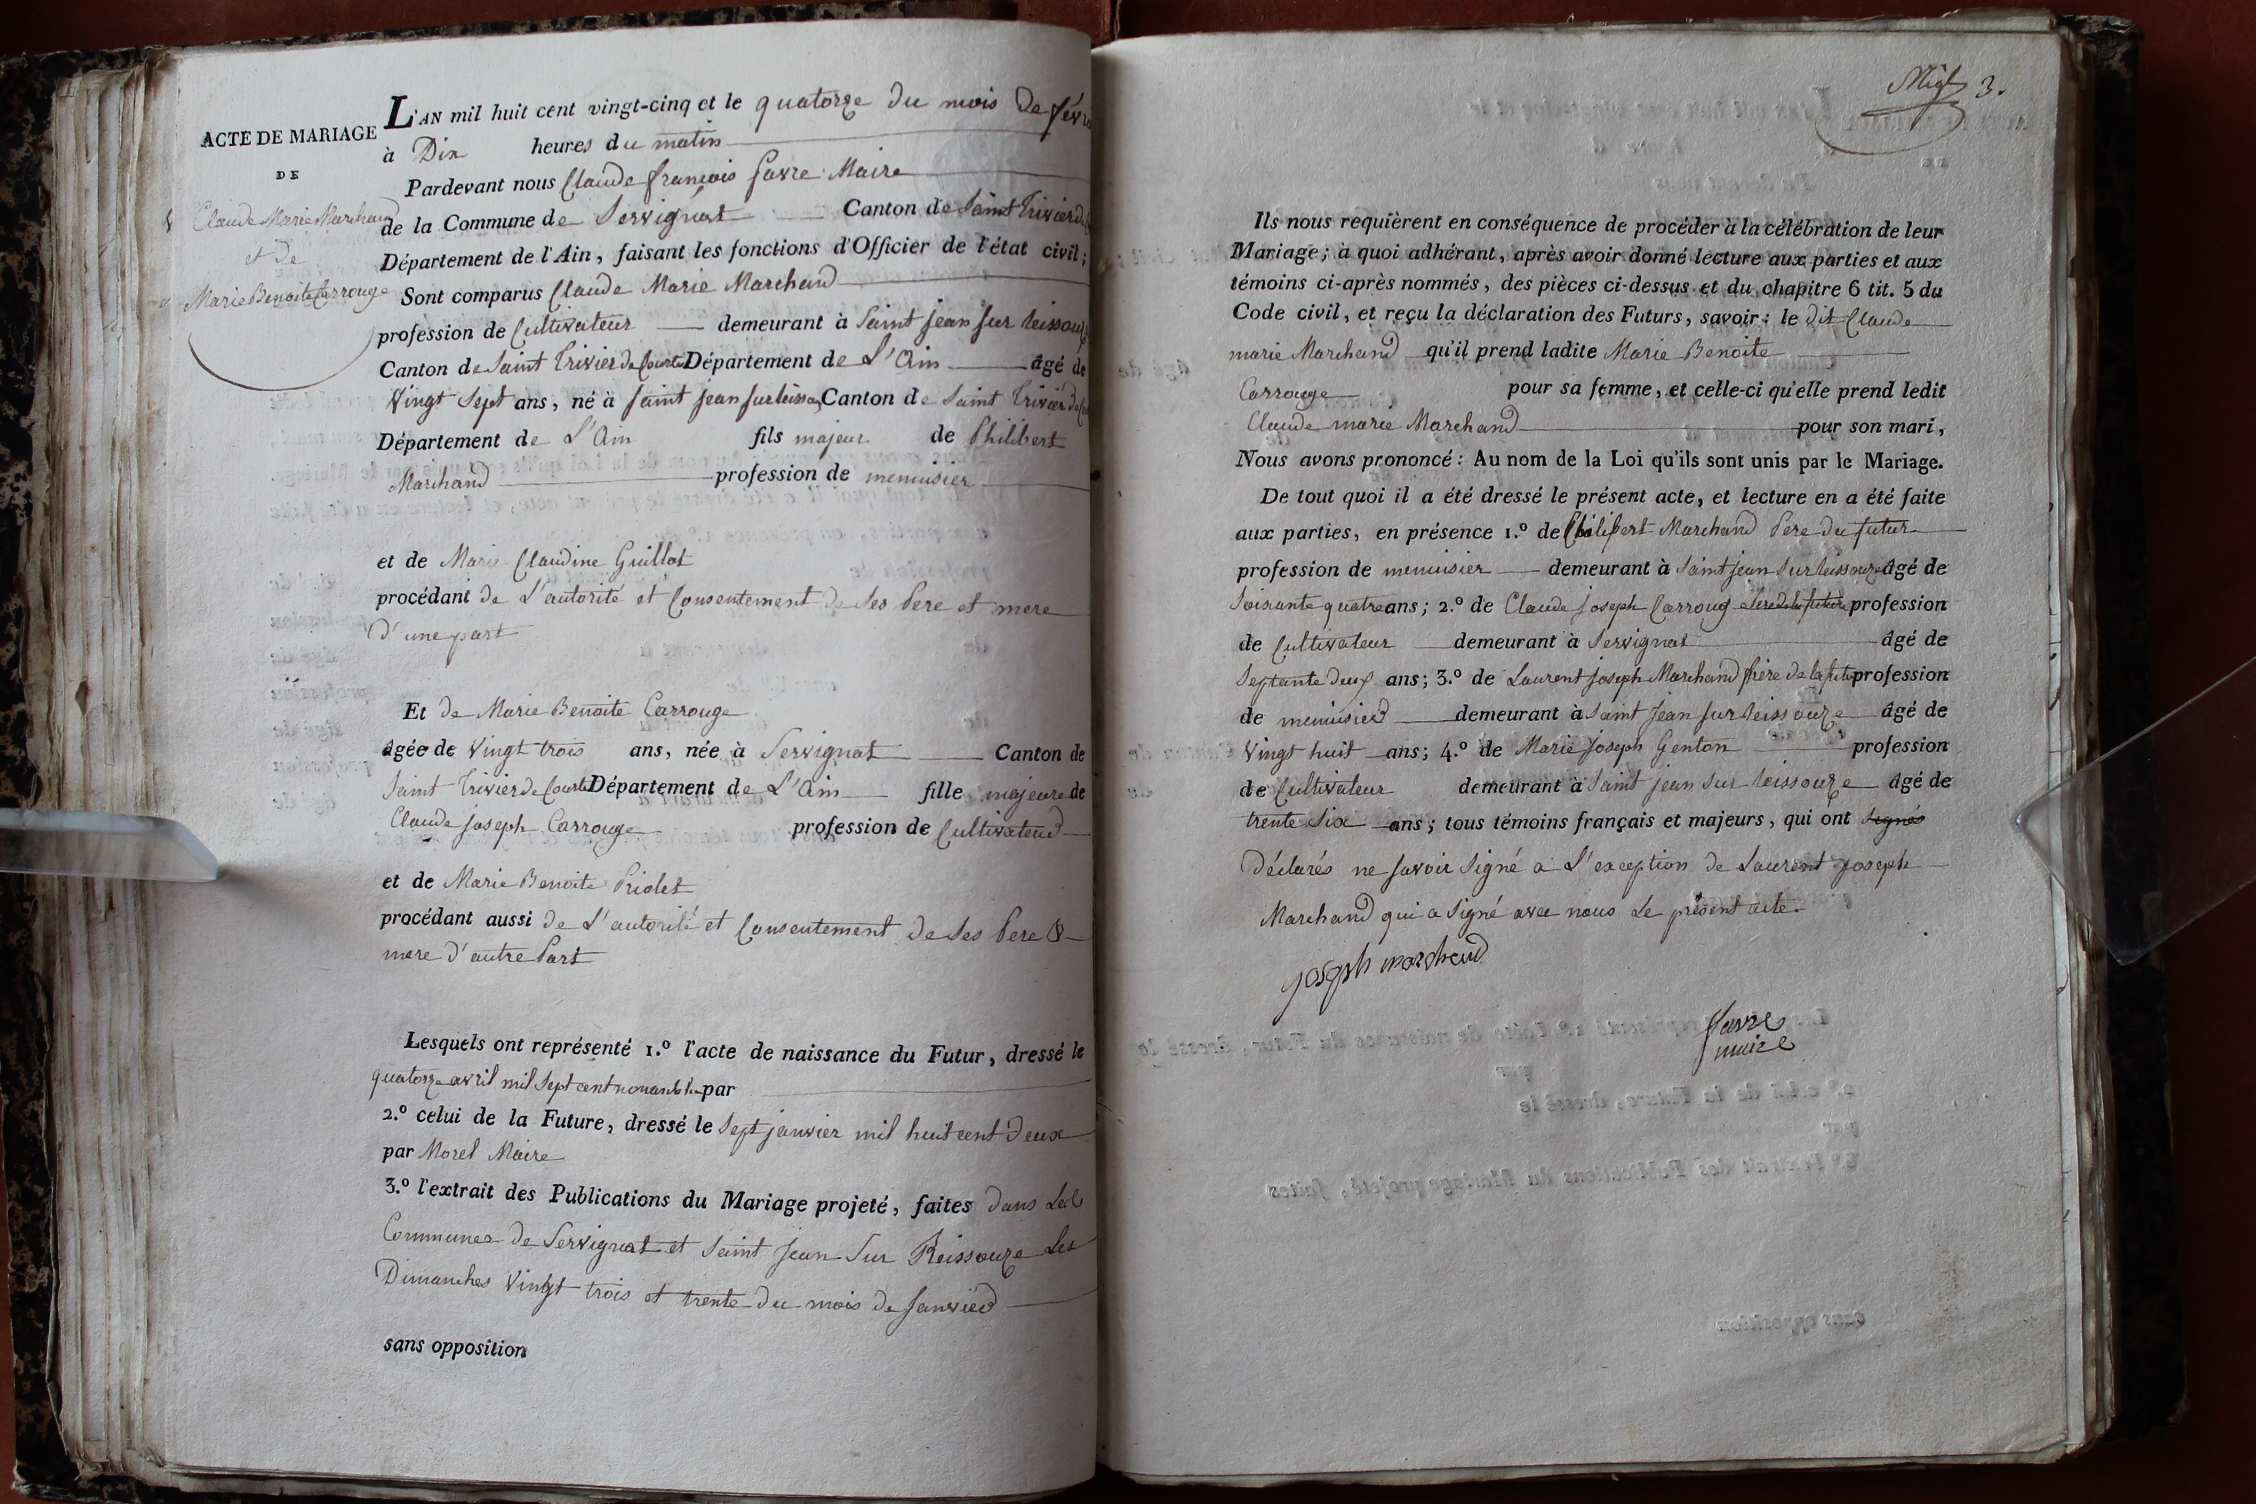 ACTE DE MARIAGE
DE
Claude Marie Marchand
et de
Marie Benoite Carrouge
L'AN mil huit cent vingt-cinq et le quatorze du mois de
à Dix heures du matin
Pardevant nous Claude françois favre Maire
de la Commune de Servignat Canton de Saint Trivier
Département de l'Ain, faisant les fonctions d'Officier de l'état civil;
Sont comparus Claude Marie Marchand
profession de Cultivateur demeurant à Saint jean sur
Canton de Saint Trivier de Courtes Département de L'Ain âgé de
Vingt Sept ans, né à Saint jean sur Canton de Saint Trivier
Département de L'Ain fils majeur de Philibert
Marchand profession de menuisier
et de Marie Claudine Guillot
procédant de L'autorité et Consentement de ses Pere et mere
d'une part
Et de Marie Benoite Carrouge
âgée de Vingt trois ans, née à Servignat Canton de
Saint Trivier de Courtes Département de L'Ain fille majeure de
Claude joseph Carrouge profession de Cultivateur
et de Marie Benoite Priolet
procédant aussi de L'autorité et Consentement de ses Pere &
mere d'autre Part
Lesquels ont représenté 1.º l'acte de naissance du Futur, dressé le
quatorze avril mil sept cent par
2.º celui de la Future, dressé le Sept janvier mil huit cent deux
par Morel Maire
3.º l'extrait des Publications du Mariage projeté, faites dans Les
Communes de Servignat et Saint Jean Sur Reissouze Les
Dimanches Vingt trois et trente du mois de Janvier
sans opposition
3.
Ils nous requièrent en conséquence de procéder à la célébration de leur
Mariage; à quoi adhérant, après avoir donné lecture aux parties et aux
témoins ci-après nommés, des pièces ci-dessus et du chapitre 6 tit. 5 du
Code civil, et reçu la déclaration des Futurs, savoir: le dit Claude
marie Marchand qu'il prend ladite Marie Benoite
Carrouge pour sa femme, et celle-ci qu'elle prend ledit
Claude marie Marchand pour son mari,
Nous avons prononcé: Au nom de la Loi qu'ils sont unis par le Mariage.
De tout quoi il a été dressé le présent acte, et lecture en a été faite
aux parties, en présence 1.º de Philibert Marchand Pere du futur
profession de menuisier demeurant à Saint jean Sur Reissouze âgé de
Soisante quatre ans; 2.º de Claude joseph Carrouge Pere de la future profession
de Cultivateur demeurant à Servignat âgé de
Septante deux ans; 3.º de Laurent joseph Marchand frère de la future profession
de menuisier demeurant à Saint Jean sur Reissouze âgé de
Vingt huit ans; 4.º de Marie joseph Genton profession
de Cultivateur demeurant à Saint jean sur Reissouze âgé de
trente Six ans; tous témoins français et majeurs, qui ont signés
Déclarés ne savoir Signé a L'exception de Laurent joseph
Marchand qui a Signé avec nous Le présent acte.
joseph marchand
favre
maire